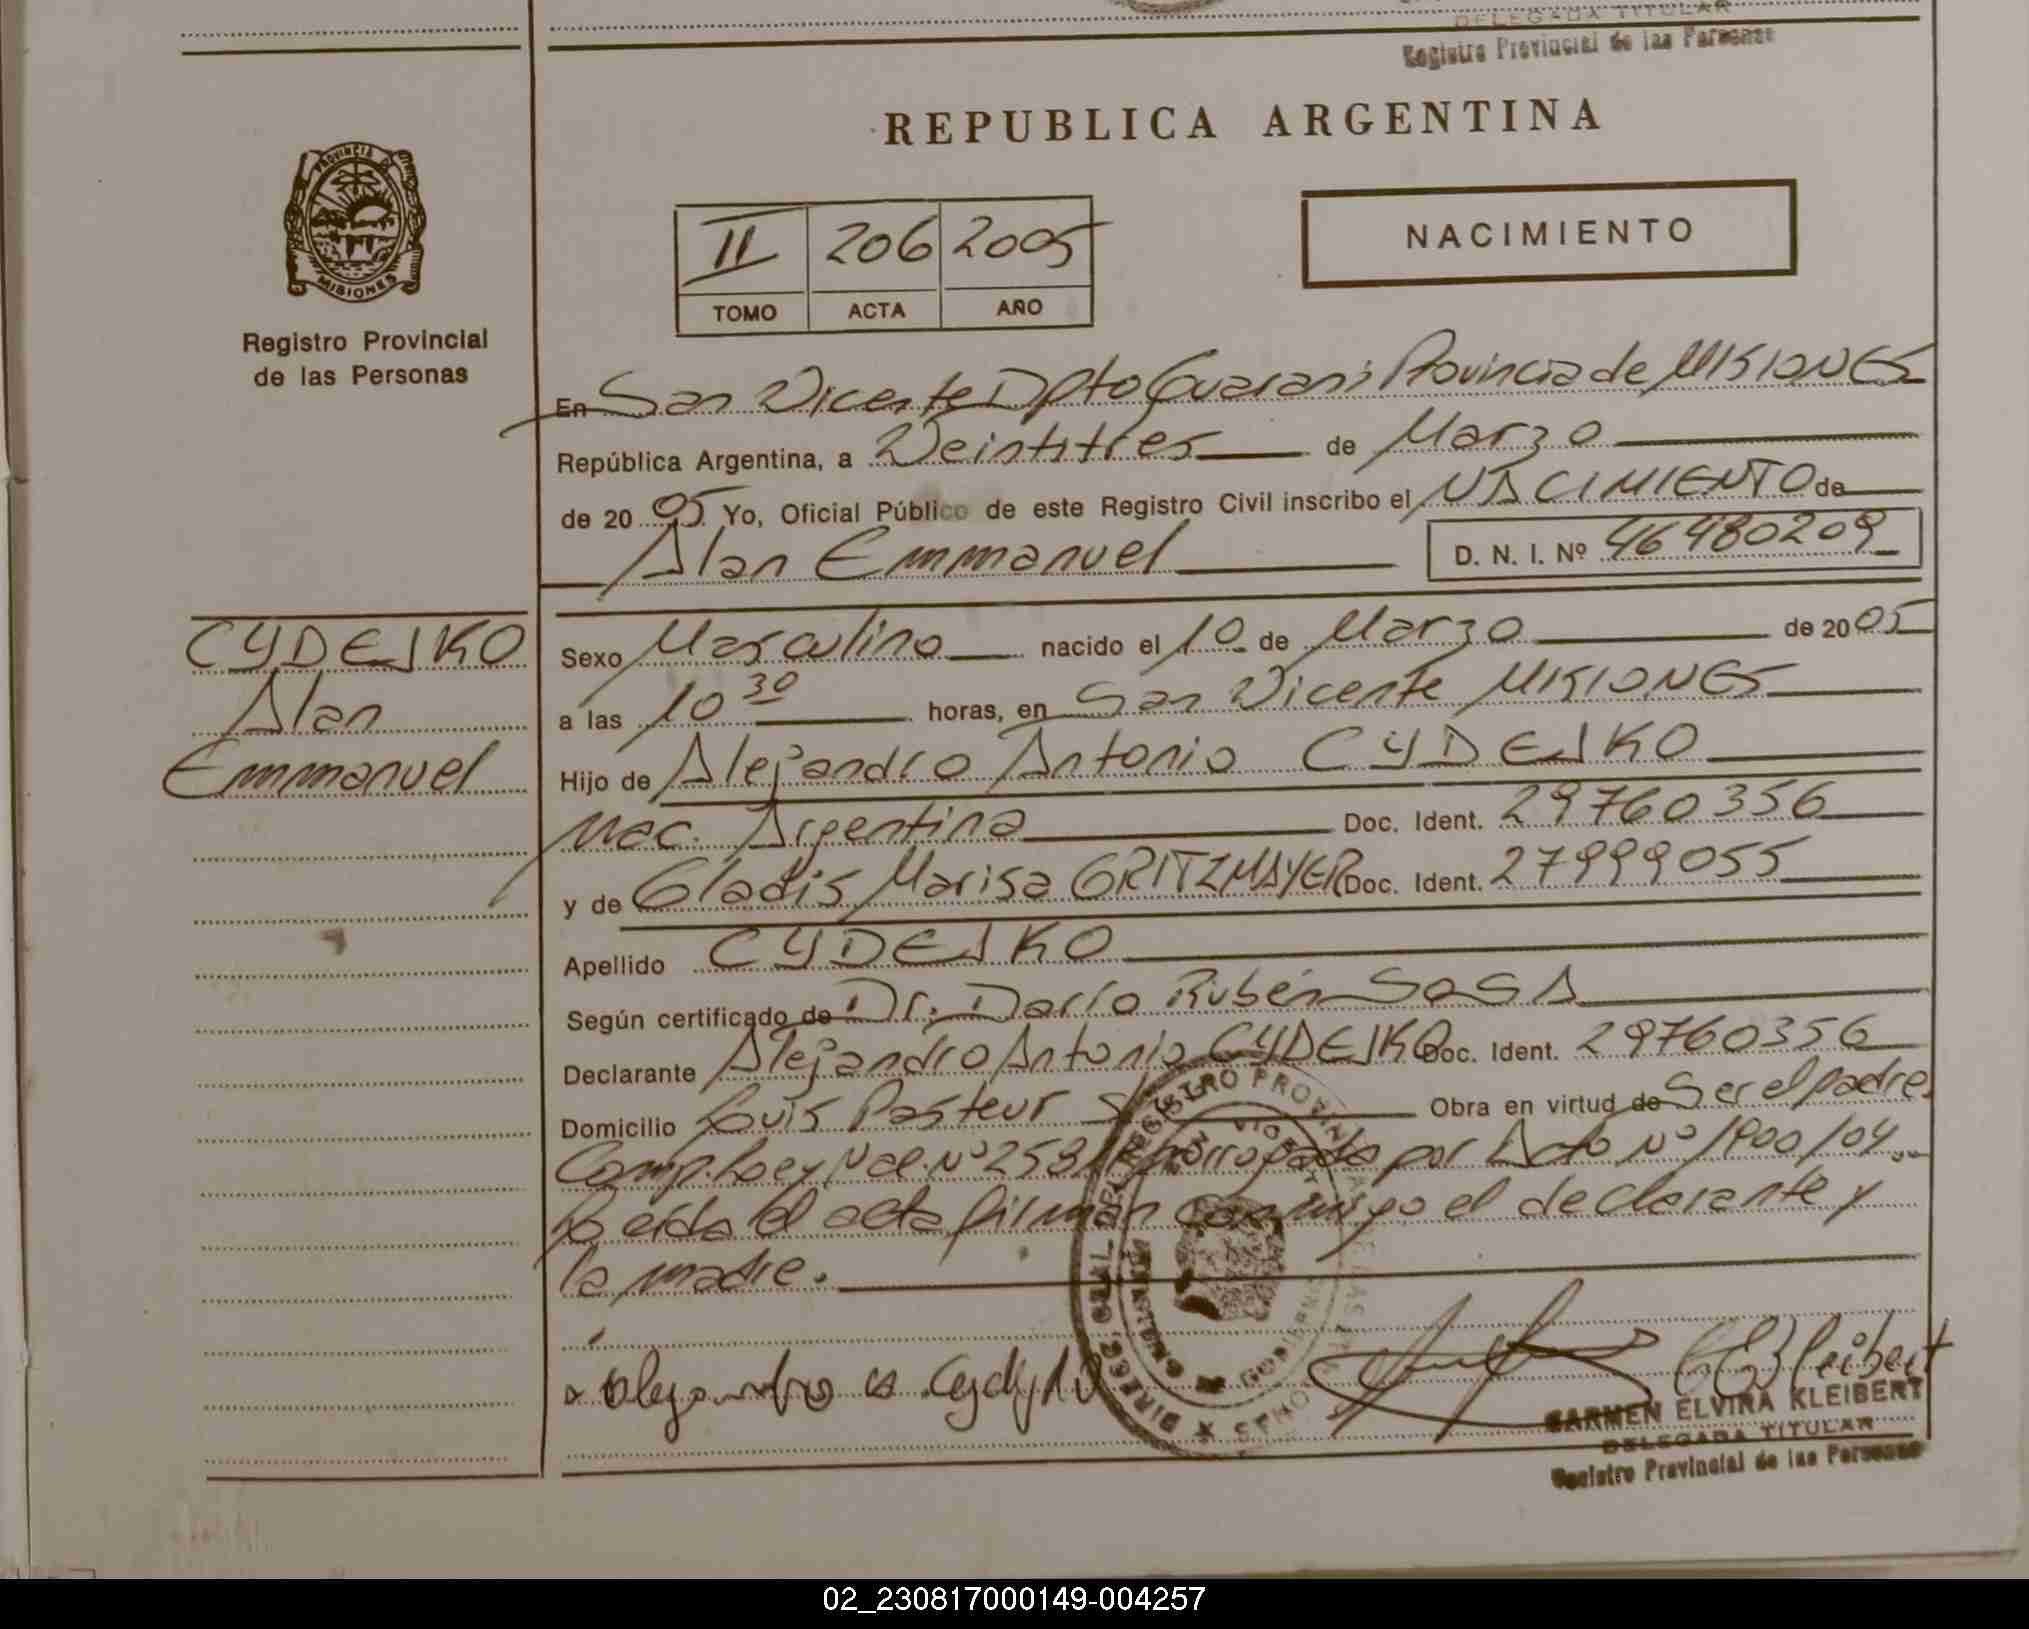 DELEGADA TITULAR
Registro Provincial de las Personas
REPUBLICA ARGENTINA
PROVINCIA DE
MISIONES
Registro Provincial
de las Personas
II 206 2005
TOMO ACTA AÑO
NACIMIENTO
En San Vicente Dpto Guaraní Provincia de MISIONES
República Argentina, a Veintitres de Marzo
de 20 05 Yo, Oficial Público de este Registro Civil inscribo el NACIMIENTO de
Alan Emmanuel D. N. I. Nº 46480209
CYDEJKO
Alan
Emmanuel
Sexo Masculino nacido el 10 de Marzo de 20 05
a las 10 30 horas, en San Vicente MISIONES
Hijo de Alejandro Antonio CYDEJKO
Nac. Argentina Doc. Ident. 29760356
y de Gladis Marisa GRITZMAYER Doc. Ident. 27999055
Apellido CYDEJKO
Según certificado de Dr. Darío Rubén SOSA
Declarante Alejandro Antonio CYDEJKO Doc. Ident. 29760356
Domicilio Luis Pasteur Obra en virtud de Ser el padre.
Comp. Ley Nac. Nº por Dcto Nº 1900/04
Leída el acta firman conmigo el declarante y
la madre.
CARMEN ELVIRA KLEIBERT
DELEGADA TITULAR
Registro Provincial de las Personas
02_230817000149-004257